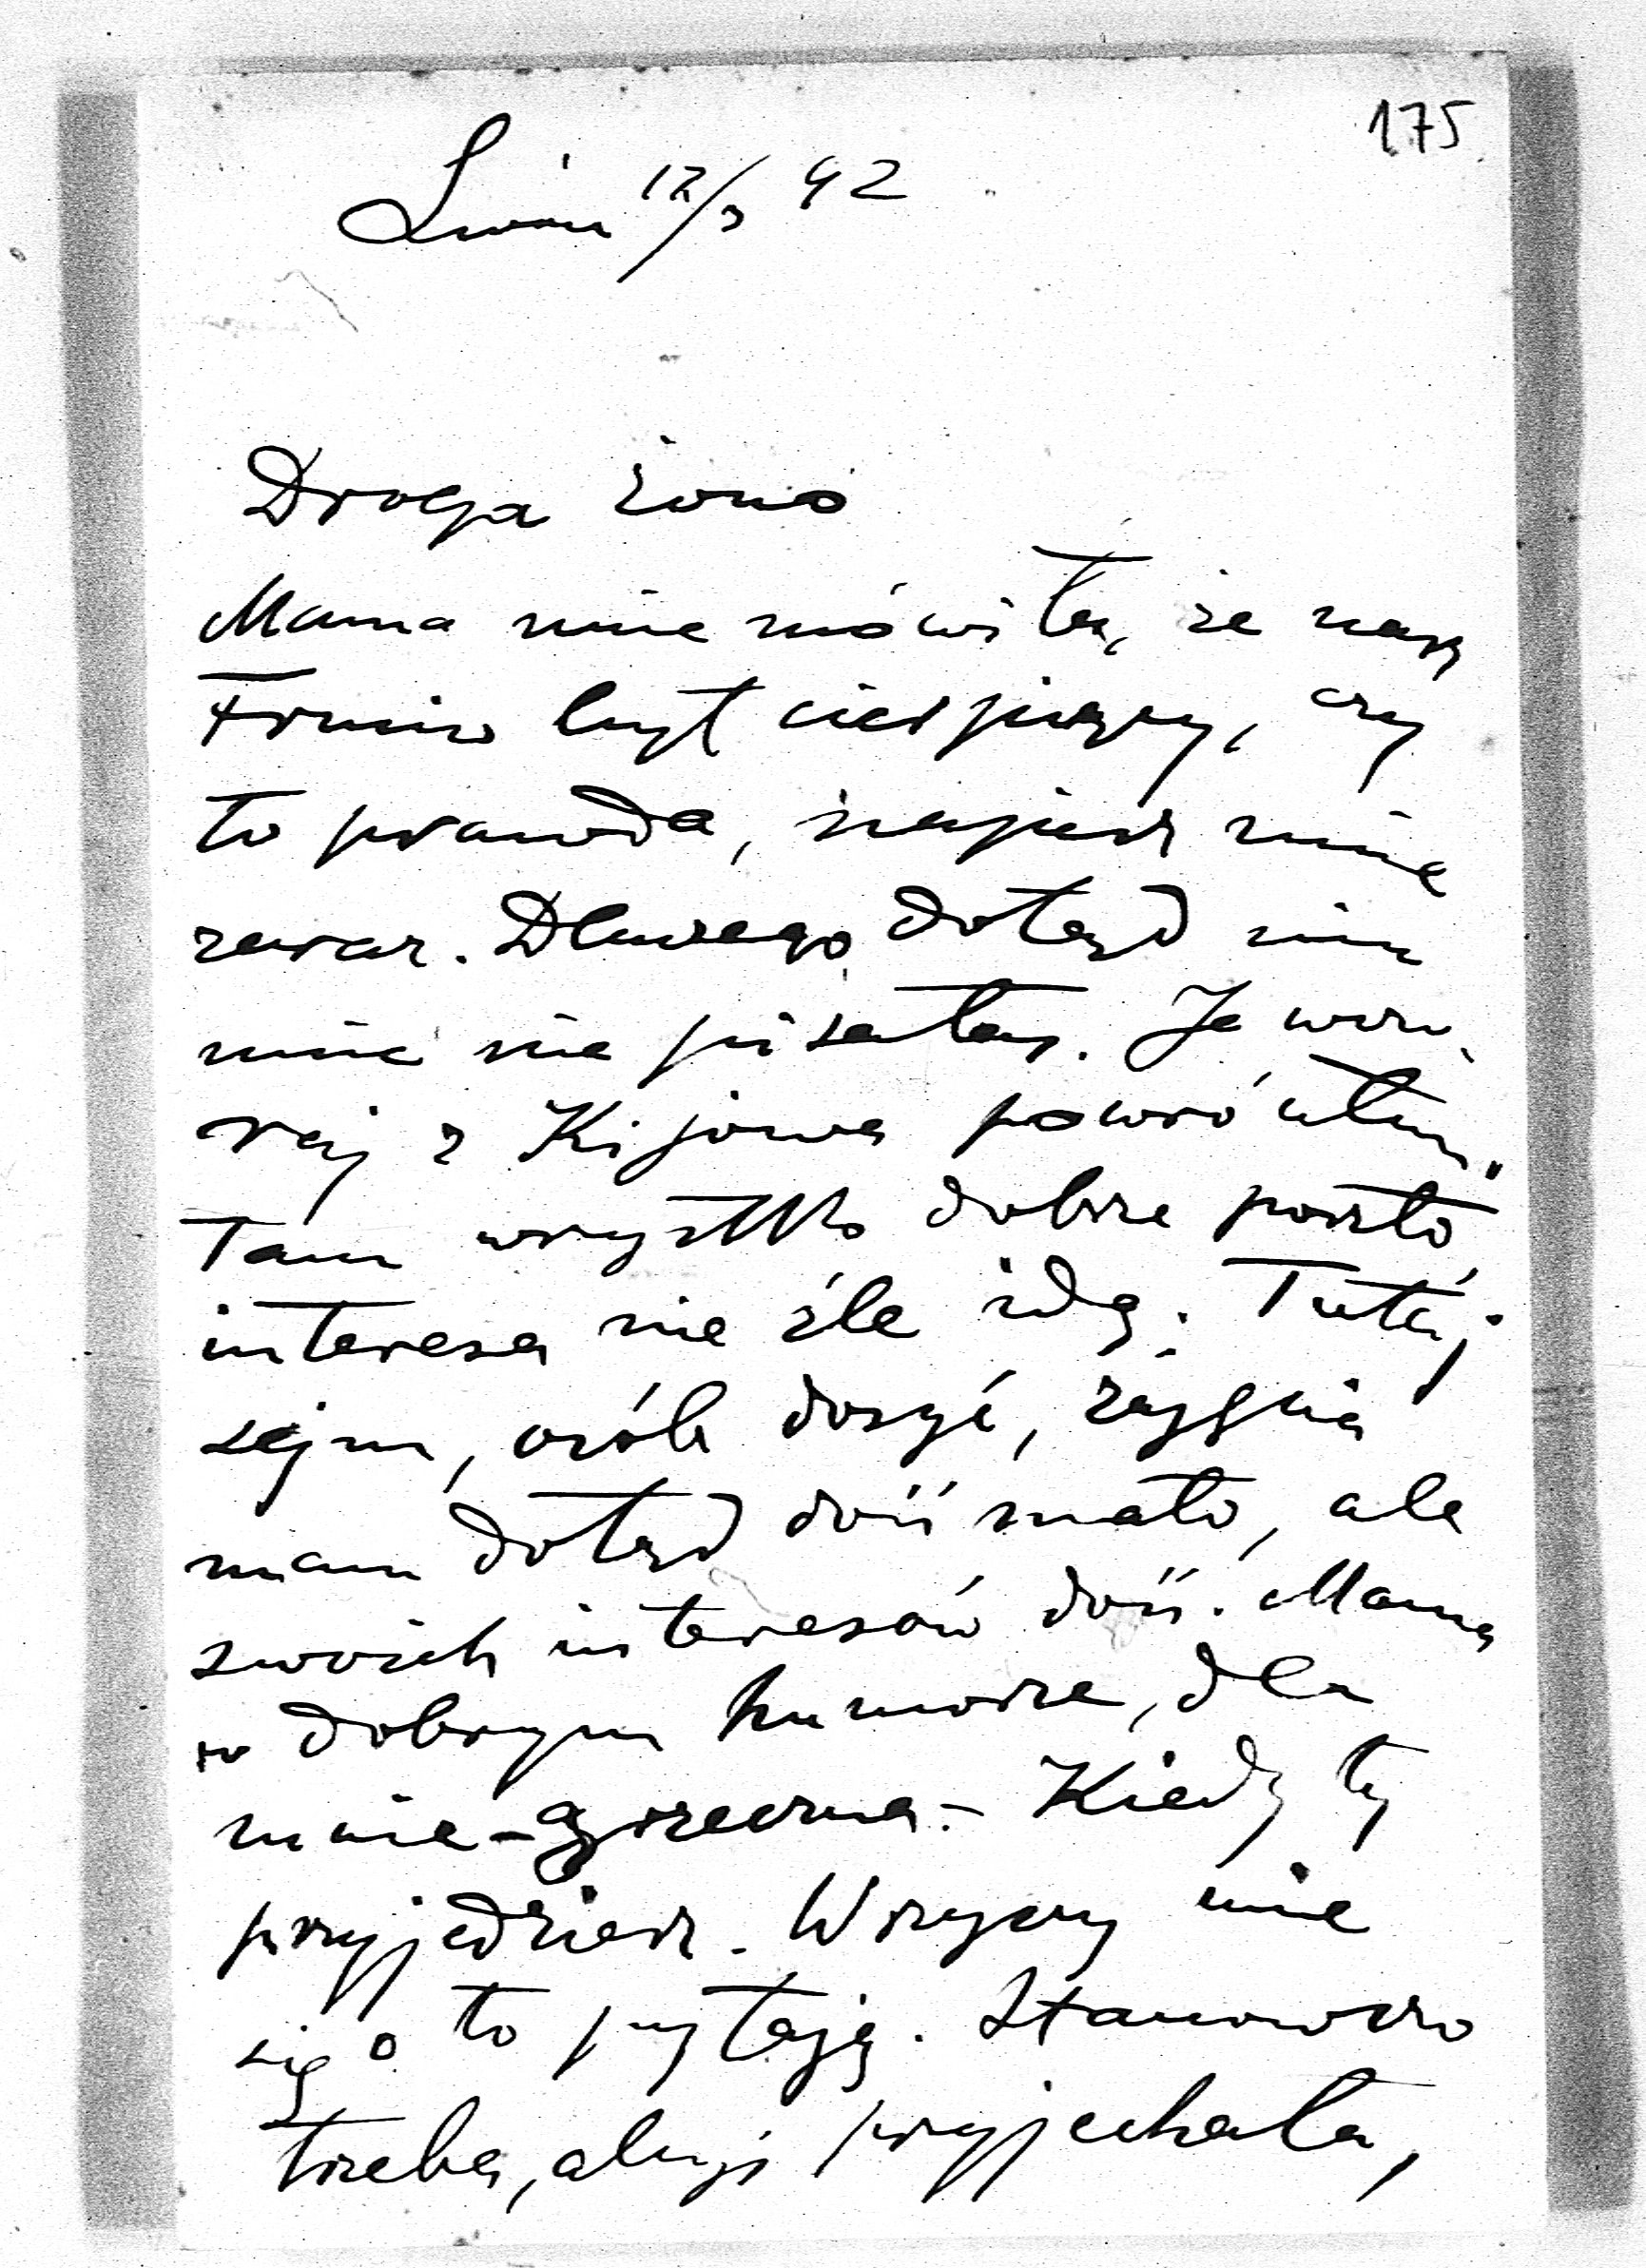 175
Lwów 12/3 42
Droga żono
Mama mnie mówiła, że nasz
Franio był cierpiący, czy
to prawda, napisz mnie
zaraz. Dlaczego dotąd
mnie nie pisałaś. Ja wczo
raj z Kijowa powróciłem,
Tam wszystko dobrze poszło
interesa nie źle idą. Tutaj
sejm, osób dosyć, zajęcia
mam dotąd dość mało, ale
swoich interesów dość. Mama
w dobrym humorze, dla
mnie - grzeczna. - Kiedy ty
przyjedziesz. Wszyscy mnie
się o to pytają. Stanowczo
trzeba, abyś przyjechała,